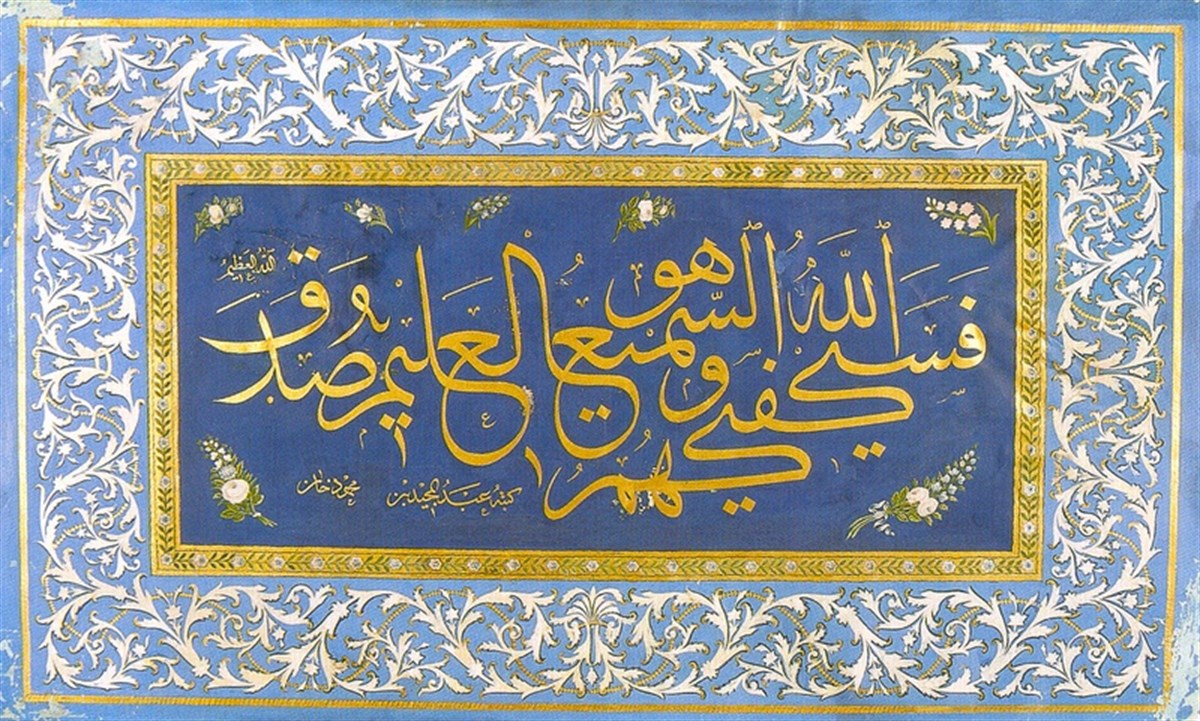 فسيكفيكهم الله وهو السميع العليم صدق
الله العظيم
كتبه عبد المجيد بن
محمود خان